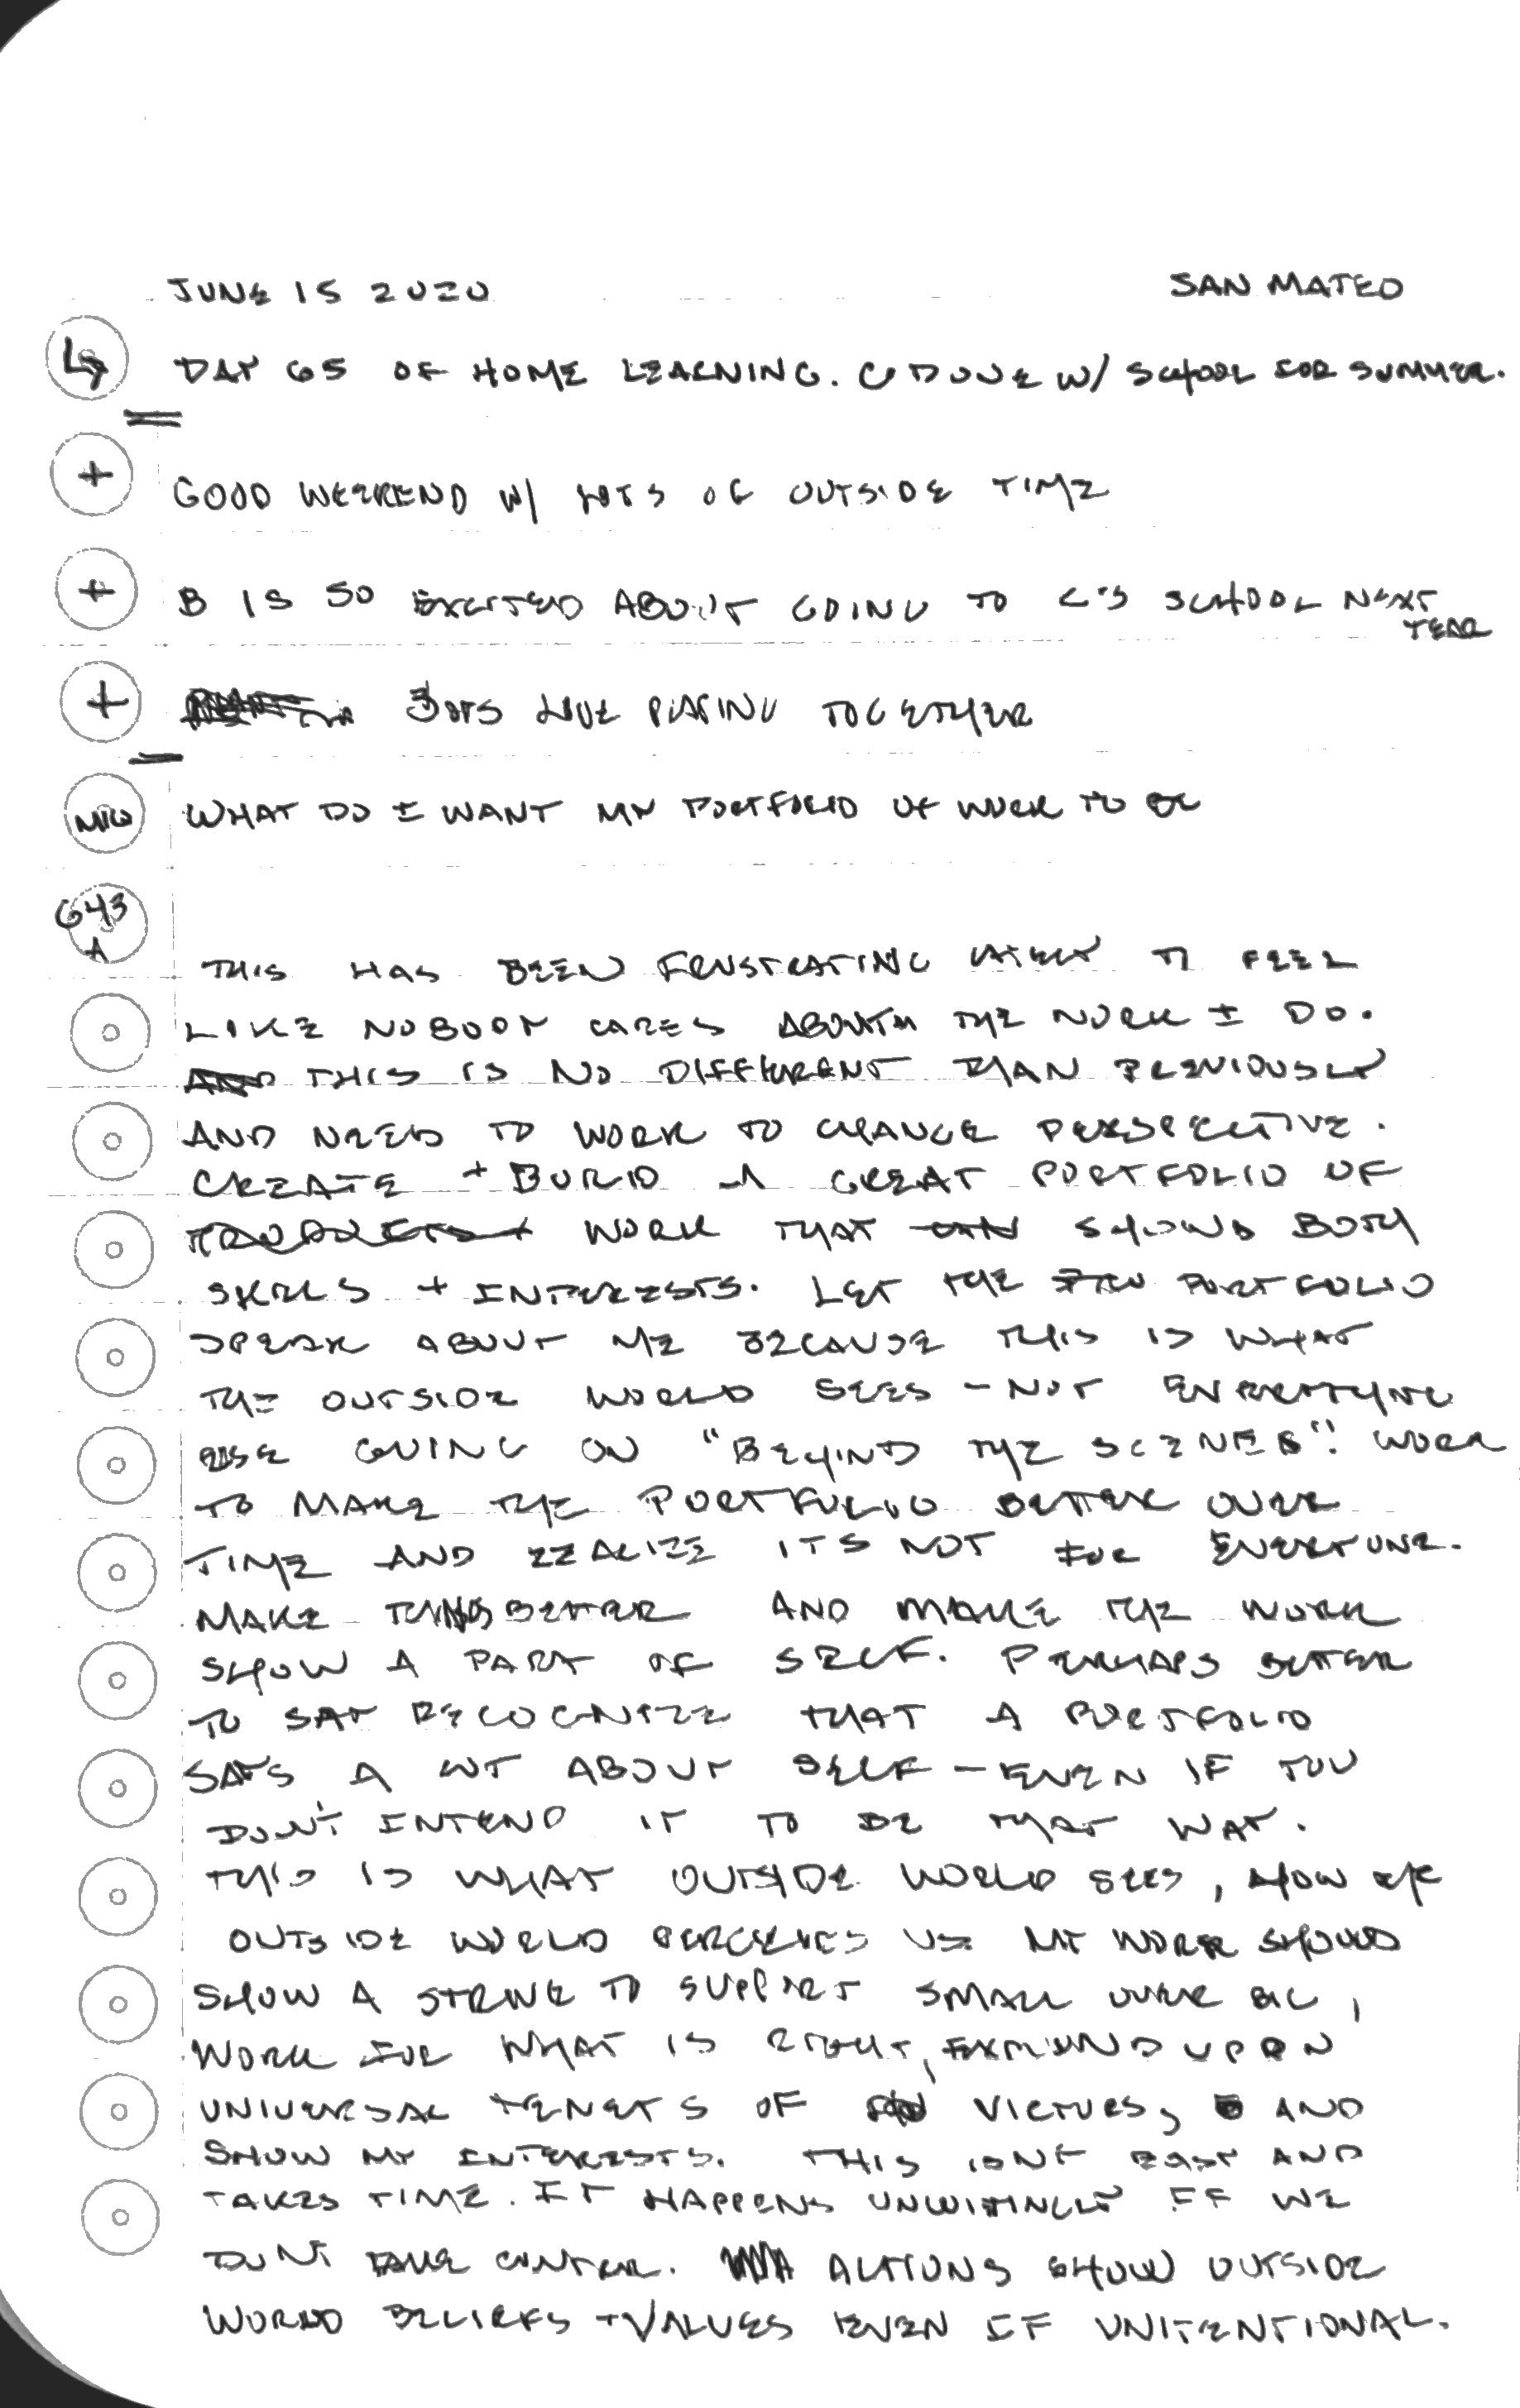 JUNE 15 2020 SAN MATEO
DAY 65 OF HOME LEARNING. C DONE W/ SCHOOL FOR SUMMER.
+ GOOD WEEKEND W/ LOTS OF OUTSIDE TIME
+ B IS SO EXCITED ABOUT GOING TO C'S SCHOOL NEXT
YEAR
+ BOYS LOVE PLAYING TOGETHER
WHAT DO I WANT MY PORTFOLIO OF WORK TO BE
643
A
THIS HAS BEEN FRUSTRATING LATELY TO FEEL
LIKE NOBODY CARES ABOUT THE WORK I DO.
THIS IS NO DIFFERENT THAN PREVIOUSLY
AND NEED TO WORK TO CHANGE PERSPECTIVE.
CREATE + BUILD A GREAT PORTFOLIO OF
WORK THAT SHOWS BOTH
SKILLS + INTERESTS. LET THE PORTFOLIO
SPEAK ABOUT ME BECAUSE THIS IS WHAT
THE OUTSIDE WORLD SEES - NOT EVERYTHING
ELSE GOING ON "BEHIND THE SCENES". WORK
TO MAKE THE PORTFOLIO BETTER OVER
TIME AND REALIZE ITS NOT FOR EVERYONE.
MAKE THINGS BETTER AND MAKE THE WORK
SHOW A PART OF SELF. PERHAPS BETTER
TO SAY RECOGNIZE THAT A PORTFOLIO
SAYS A LOT ABOUT SELF - EVEN IF YOU
DON'T INTEND IT TO BE THAT WAY.
THIS IS WHAT OUTSIDE WORLD SEES, HOW
OUTSIDE WORLD PERCEIVES US. MY WORK SHOULD
SHOW A STRIVE TO SUPPORT SMALL OVER BIG,
WORK FOR WHAT IS RIGHT, EXPOUND UPON
UNIVERSAL TENETS OF VIRTUES, AND
SHOW MY INTERESTS. THIS ISNT EASY AND
TAKES TIME. IT HAPPENS UNWITTINGLY IF WE
DON'T TAKE CONTROL. ACTIONS SHOW OUTSIDE
WORLD BELIEFS + VALUES EVEN IF UNITENTIONAL.